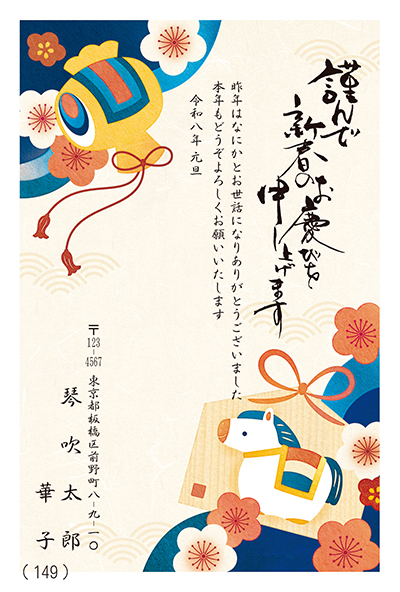 謹んで
新春のお慶びを
申し上げます
昨年はなにかとお世話になりありがとうございました
本年もどうぞよろしくお願いいたします
令和八年 元旦
〒123-4567
東京都板橋区前野町八-九-一〇
琴吹太郎
華子
(149)